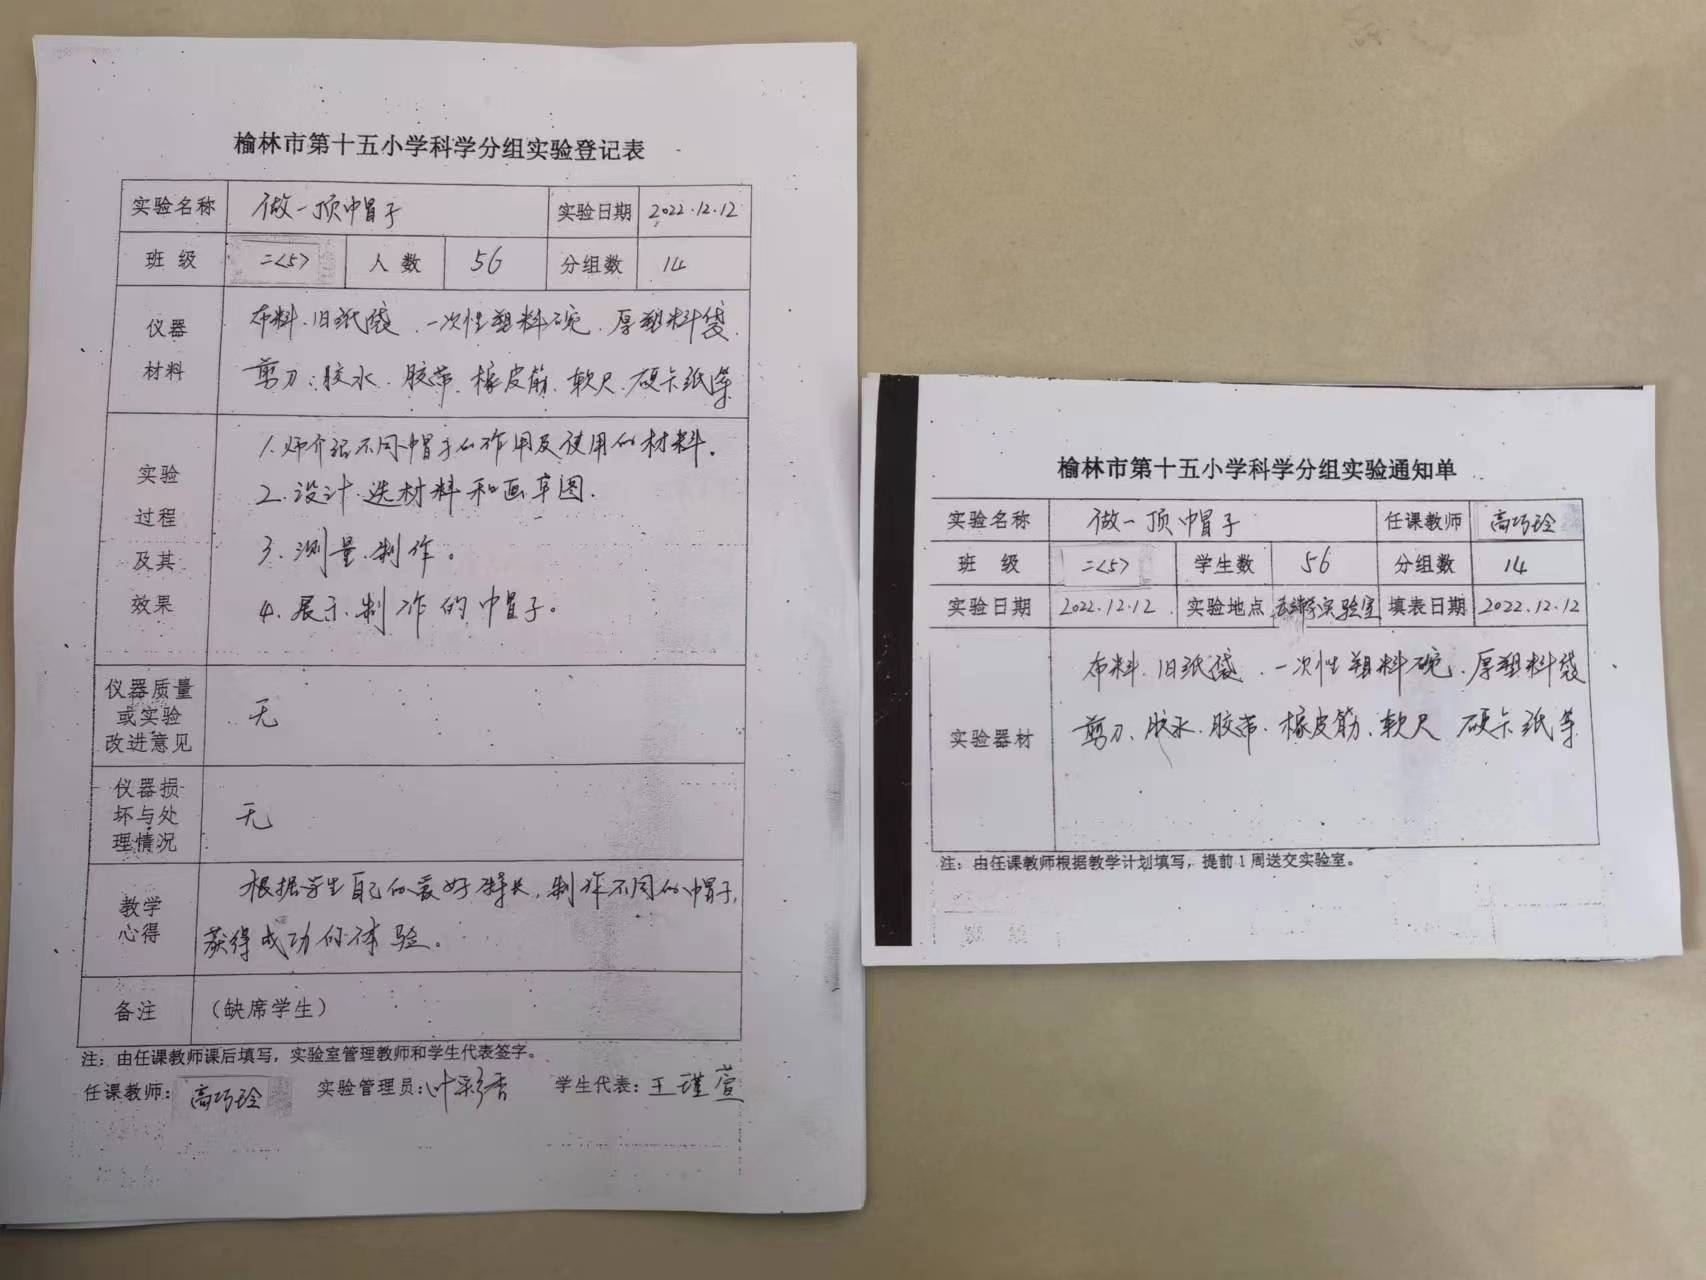 榆林市第十五小学科学分组实验登记表
实验名称 做一顶帽子 实验日期 2022.12.12
班 级 二<5> 人 数 56 分组数 14
仪器
材料
布料、旧纸袋、一次性塑料碗、厚塑料袋
剪刀、胶水、胶带、橡皮筋、软尺、硬卡纸等
实验
过程
及其
效果
1.师介绍不同帽子的作用及使用的材料。
2.设计、选材料和画草图.
3.测量、制作。
4.展示、制作的帽子。
仪器质量
或实验
改进意见
无
仪器损
坏与处
理情况
无
教学
心得
根据学生自己的爱好特长,制作不同的帽子,
获得成功的体验。
备注 (缺席学生)
注: 由任课教师课后填写, 实验室管理教师和学生代表签字。
任课教师: 高巧玲 实验管理员: 叶彩香 学生代表: 王瑾萱
榆林市第十五小学科学分组实验通知单
实验名称 做一顶帽子 任课教师 高巧玲
班 级 二<5> 学生数 56 分组数 14
实验日期 2022.12.12 实验地点 实验室 填表日期 2022.12.12
实验器材
布料、旧纸袋、一次性塑料碗、厚塑料袋
剪刀、胶水、胶带、橡皮筋、软尺 硬卡纸等
注: 由任课教师根据教学计划填写, 提前1周送交实验室。